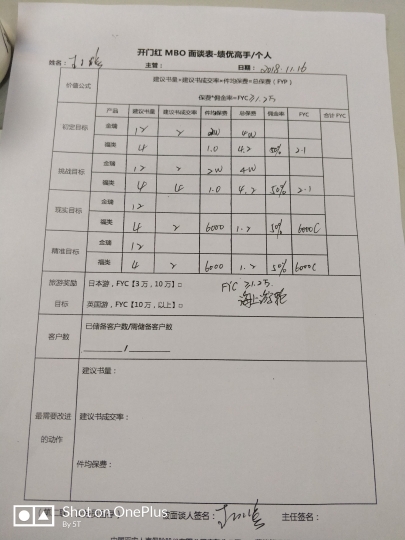 开门红 MBO 面谈表-绩优高手/个人
姓名： 主管： 日期：2018.11.16
价值公式 建议书量*建议书成交率*件均保费=总保费（FYP）
保费*佣金率=FYC 31.25
产品 建议书量 建议书成交率 件均保费 总保费 佣金率 FYC 合计 FYC
初定目标 金瑞 12 2 2W 4W
福类 4 1.0 4.2 50% 2.1
挑战目标 金瑞 12 2 2W 4W
福类 4 4 1.0 4.2 50% 2.1
现实目标 金瑞 12
福类 4 2 6000 1.2 50% 6000
精准目标 金瑞 12
福类 4 2 6000 1.2 50% 6000
旅游奖励 日本游，FYC【3 万，10 万】□ FYC 31.25.
目标 英国游，FYC【10 万，以上】□ 海上游轮
客户数 已储备客户数/需储备客户数
/
建议书量：
最需要改进 建议书成交率：
的动作
件均保费：
应面谈人签名： 主任签名：
Shot on OnePlus
By ST